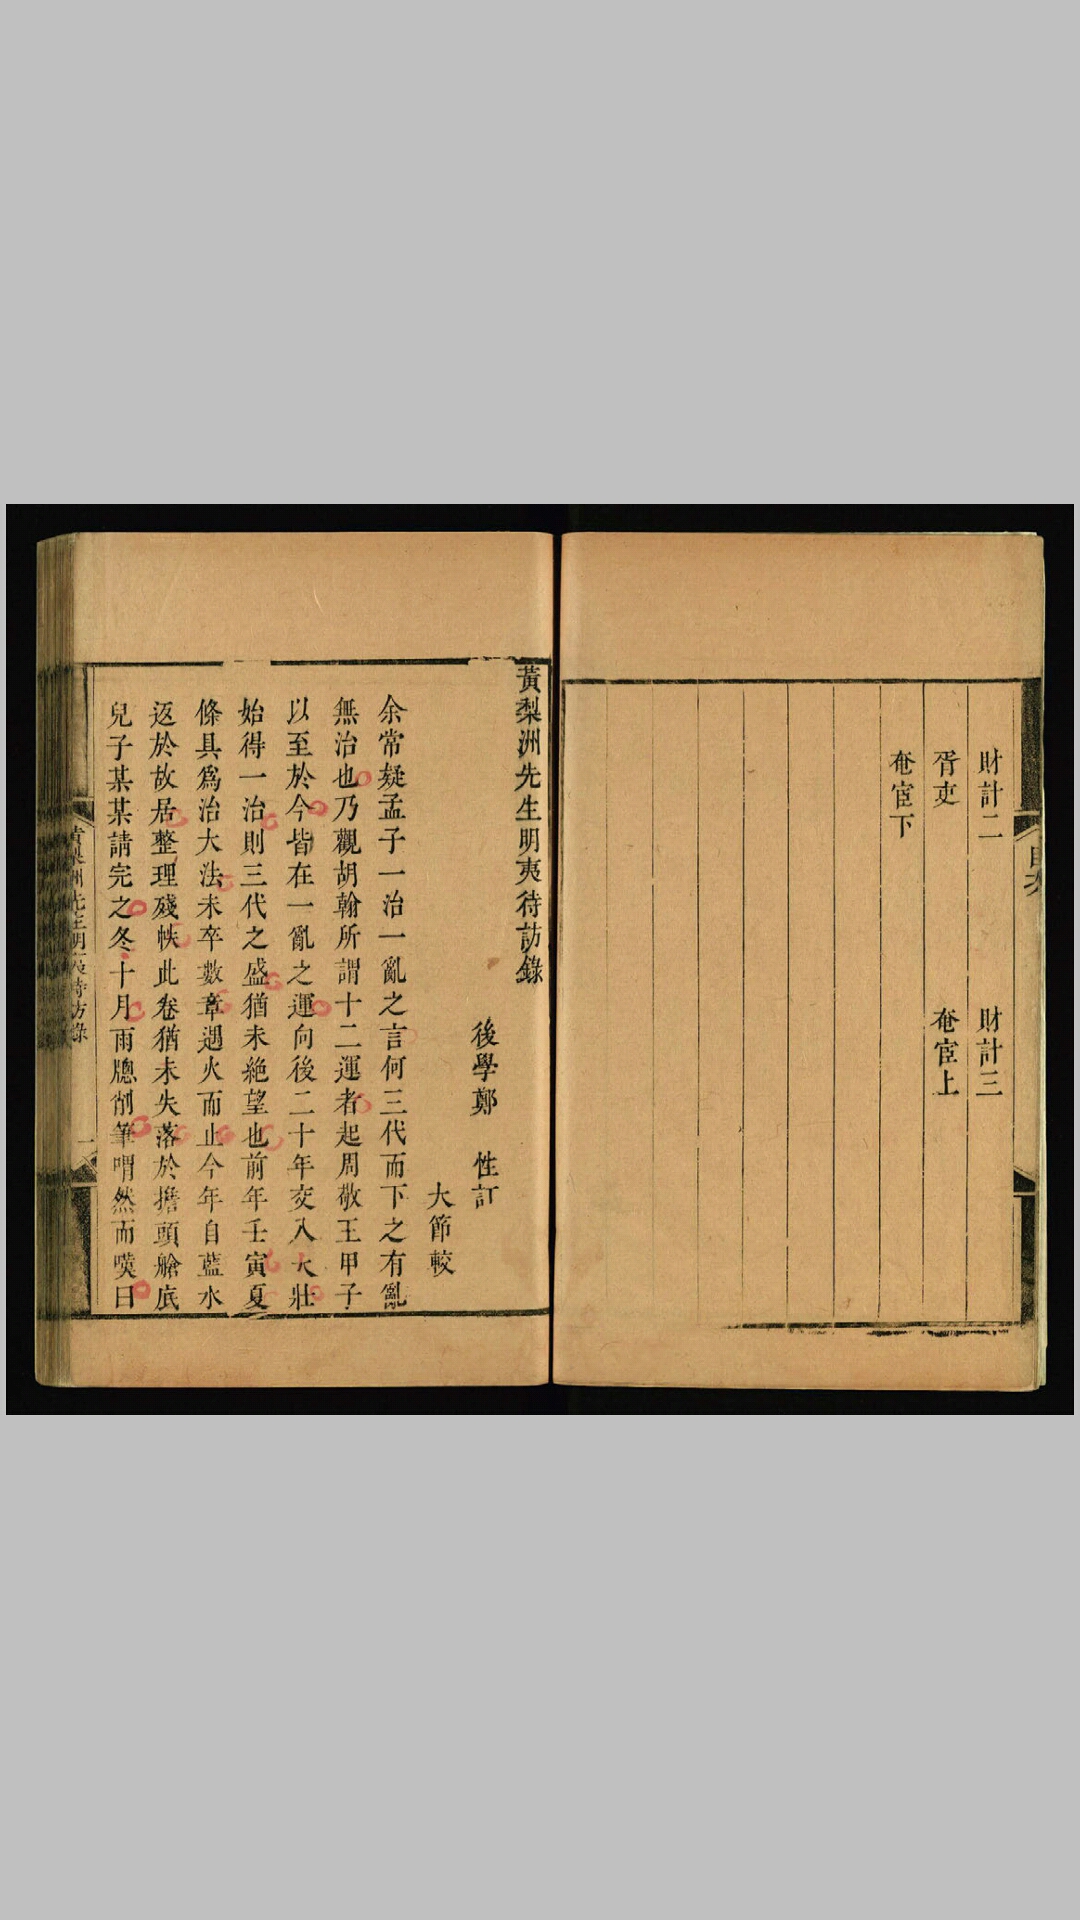 財計二　財計三
胥吏　奄宦上
奄宦下
目次
黃梨洲先生明夷待訪錄
後學鄭　性訂
大節較
余常疑孟子一治一亂之言何三代而下之有亂
無治也乃觀胡翰所謂十二運者起周敬王甲子
以至於今皆在一亂之運向後二十年交入大壯
始得一治則三代之盛猶未絶望也前年壬寅夏
條具爲治大法未卒數章遇火而止今年自藍水
返於故居整理殘帙此卷猶未失落於擔頭艙底
兒子某某請完之冬十月雨牕削筆喟然而嘆曰
黃梨洲先生明夷待訪錄
一